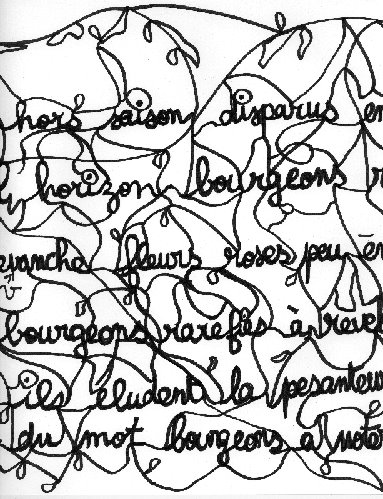 hors saison disparus en
horizon bourgeons r
evanche fleurs roses peu en
bourgeons rarefiés à revel
ils éludent la pesanteur
du mot bourgeons à noter